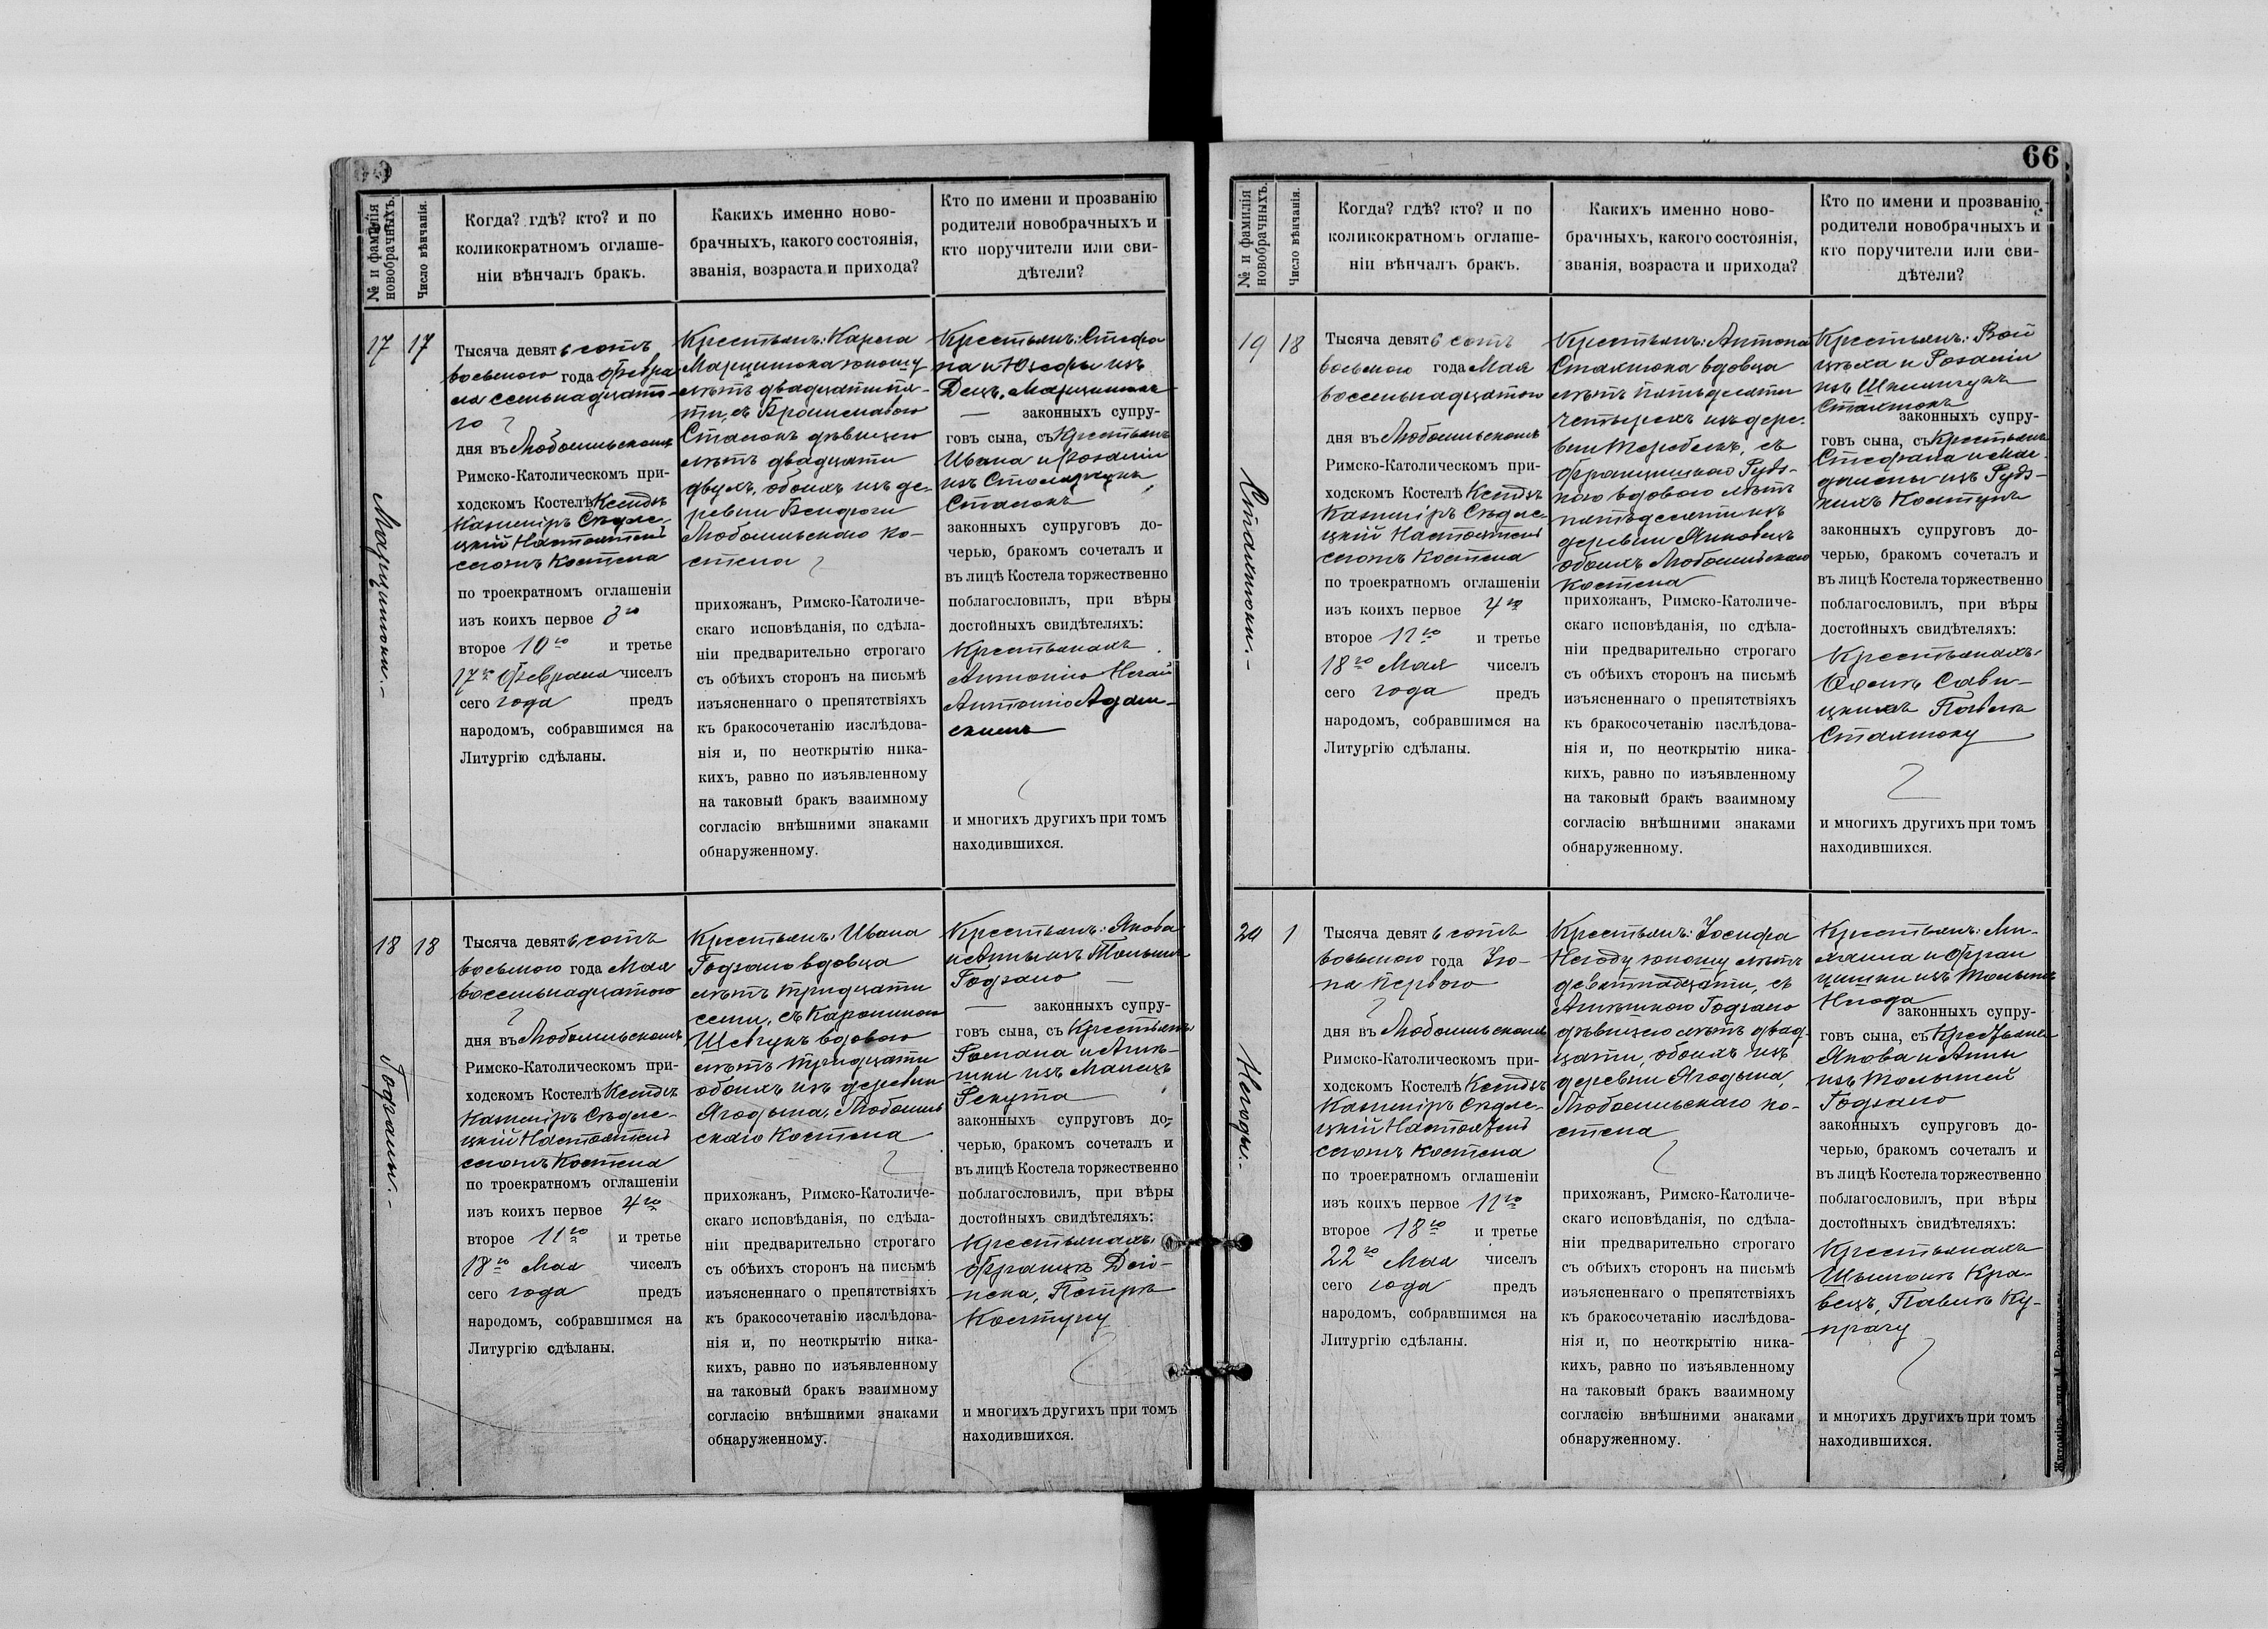 66
№ и фамилія новобрачныхъ.
Число вѣнчанія.
Когда? гдѣ? кто? и по
коликократномъ оглаше-
ніи вѣнчалъ бракъ.
Какихъ именно ново-
брачныхъ, какого состоянія,
званія, возраста и прихода?
Кто по имени и прозванію
родители новобрачныхъ и
кто поручители или сви-
дѣтели?
17
Марцинюки.-
17
Тысяча девятьсотъ
восьмого года Февра
ля семьнадцато-
го
дня въ Любомльскомъ
Римско-Католическомъ при-
ходскомъ Костелѣ Ксендзъ
Казиміръ Сѣдле-
цкій Настоятель
сегожъ Костела
по троекратномъ оглашеніи
изъ коихъ первое 3го
второе 10го и третье
17го Февраля чиселъ
сего года предъ
народомъ, собравшимся на
Литургію сдѣланы.
Крестьянъ: Кароля
Марцинюка юношу
лѣтъ двадцати пя-
ти, съ Брониславою
Сташокъ дѣвицею
лѣтъ двадцати
двухъ, обоихъ изъ де-
ревни Бендюги
Любомльскаго ко-
стела
прихожанъ, Римско-Католиче-
скаго исповѣданія, по сдѣла-
ніи предварительно строгаго
съ обѣихъ сторонъ на письмѣ
изъясненнаго о препятствіяхъ
къ бракосочетанію изслѣдова-
нія и, по неоткрытію ника-
кихъ, равно по изъявленному
на таковый бракъ взаимному
согласію внѣшними знаками
обнаруженному.
Крестьянъ: Стефа
на и Юзефы изъ
Децъ, Марцинюкъ
законныхъ супру-
говъ сына, съ Крестьянъ
Ивана и Розаліи
изъ Столярчукъ
Сташокъ
законныхъ супруговъ до-
черью, бракомъ сочеталъ и
въ лицѣ Костела торжественно
поблагословилъ, при вѣры
достойныхъ свидѣтеляхъ:
Крестьянахъ
Антонію
Антонію Адам-
скимъ
и многихъ другихъ при томъ
находившихся.
18
Годзали.-
18
Тысяча девятьсотъ
восьмого года Мая
восемьнадцатого
дня въ Любомльскомъ
Римско-Католическомъ при-
ходскомъ Костелѣ Ксендзъ
Казиміръ Сѣдле-
цкій Настоятель
сегожъ Костела
по троекратномъ оглашеніи
изъ коихъ первое 4го
второе 11го и третье
18го Мая чиселъ
сего года предъ
народомъ, собравшимся на
Литургію сдѣланы.
Крестьянъ: Ивана
вдовца
лѣтъ тридцати
семи, съ Каролиною
Шевчукъ вдовою
лѣтъ тридцати
обоихъ изъ деревни
Ягодына, Любомль
скаго Костела
прихожанъ, Римско-Католиче-
скаго исповѣданія, по сдѣла-
ніи предварительно строгаго
съ обѣихъ сторонъ на письмѣ
изъясненнаго о препятствіяхъ
къ бракосочетанію изслѣдова-
нія и, по неоткрытію ника-
кихъ, равно по изъявленному
на таковый бракъ взаимному
согласію внѣшними знаками
обнаруженному.
Крестьянъ: Якова
и Анны изъ
законныхъ супру-
говъ сына, съ Крестьянъ
Романа и Агнѣ-
шки изъ Манецъ
Рекута
законныхъ супруговъ до-
черью, бракомъ сочеталъ и
въ лицѣ Костела торжественно
поблагословилъ, при вѣры
достойныхъ свидѣтеляхъ:
Крестьянахъ:
Петрѣ
Костуку
и многихъ другихъ при томъ
находившихся.
№ и фамилія новобрачныхъ.
Число вѣнчанія.
Когда? гдѣ? кто? и по
коликократномъ оглаше-
ніи вѣнчалъ бракъ.
Какихъ именно ново-
брачныхъ, какого состоянія,
званія, возраста и прихода?
Кто по имени и прозванію
родители новобрачныхъ и
кто поручители или сви-
дѣтели?
19
Стахнюки.-
18
Тысяча девятьсотъ
восьмого года Мая
восемьнадцатого
дня въ Любомльскомъ
Римско-Католическомъ при-
ходскомъ Костелѣ Ксендзъ
Казиміръ Сѣдле-
цкій Настоятель
сегожъ Костела
по троекратномъ оглашеніи
изъ коихъ первое 4го
второе 11го и третье
18го Мая чиселъ
сего года предъ
народомъ, собравшимся на
Литургію сдѣланы.
Крестьянъ: Антона
Стахнюка вдовца
лѣтъ пятьдесяти
четырехъ изъ дере-
вни Теребелкъ, съ
Францишкою Рудз-
кою вдовою лѣтъ
пятьдесяти изъ
деревни Янковецъ
обоихъ Любомльскаго
Костела
прихожанъ, Римско-Католиче-
скаго исповѣданія, по сдѣла-
ніи предварительно строгаго
съ обѣихъ сторонъ на письмѣ
изъясненнаго о препятствіяхъ
къ бракосочетанію изслѣдова-
нія и, по неоткрытію ника-
кихъ, равно по изъявленному
на таковый бракъ взаимному
согласію внѣшними знаками
обнаруженному.
Крестьянъ: Вой
цѣха и Розаліи
изъ
Стахнюкъ
законныхъ супру-
говъ сына, съ Крестьянъ
Стефана и Маг-
далены изъ Рудз-
кихъ Костукъ
законныхъ супруговъ до-
черью, бракомъ сочеталъ и
въ лицѣ Костела торжественно
поблагословилъ, при вѣры
достойныхъ свидѣтеляхъ:
Крестьянахъ:
Сави-
цкихъ Павлѣ
Стахнюку
и многихъ другихъ при томъ
находившихся.
20
Негоды.-
1
Тысяча девятьсотъ
восьмого года Ію-
ня Первого
дня въ Любомльскомъ
Римско-Католическомъ при-
ходскомъ Костелѣ Ксендзъ
Казиміръ Сѣдле-
цкій Настоятель
сегожъ Костела
по троекратномъ оглашеніи
изъ коихъ первое 11го
второе 18го и третье
22го Мая чиселъ
сего года предъ
народомъ, собравшимся на
Литургію сдѣланы.
Крестьянъ: Іосифа
Негоду юношу лѣтъ
девятнадцати, съ
дѣвицею лѣтъ двад-
цати, обоихъ изъ
деревни Ягодына,
Любомльскаго ко-
стела
прихожанъ, Римско-Католиче-
скаго исповѣданія, по сдѣла-
ніи предварительно строгаго
съ обѣихъ сторонъ на письмѣ
изъясненнаго о препятствіяхъ
къ бракосочетанію изслѣдова-
нія и, по неоткрытію ника-
кихъ, равно по изъявленному
на таковый бракъ взаимному
согласію внѣшними знаками
обнаруженному.
Крестьянъ: Ми-
хаила и Фран
цишки изъ
Негода
законныхъ супру-
говъ сына, съ Крестьянъ
Якова и Анны
изъ
законныхъ супруговъ до-
черью, бракомъ сочеталъ и
въ лицѣ Костела торжественно
поблагословилъ, при вѣры
достойныхъ свидѣтеляхъ:
Крестьянахъ
Шымонъ Кра-
вецъ, Павлѣ Ку-
прачу
и многихъ другихъ при томъ
находившихся.